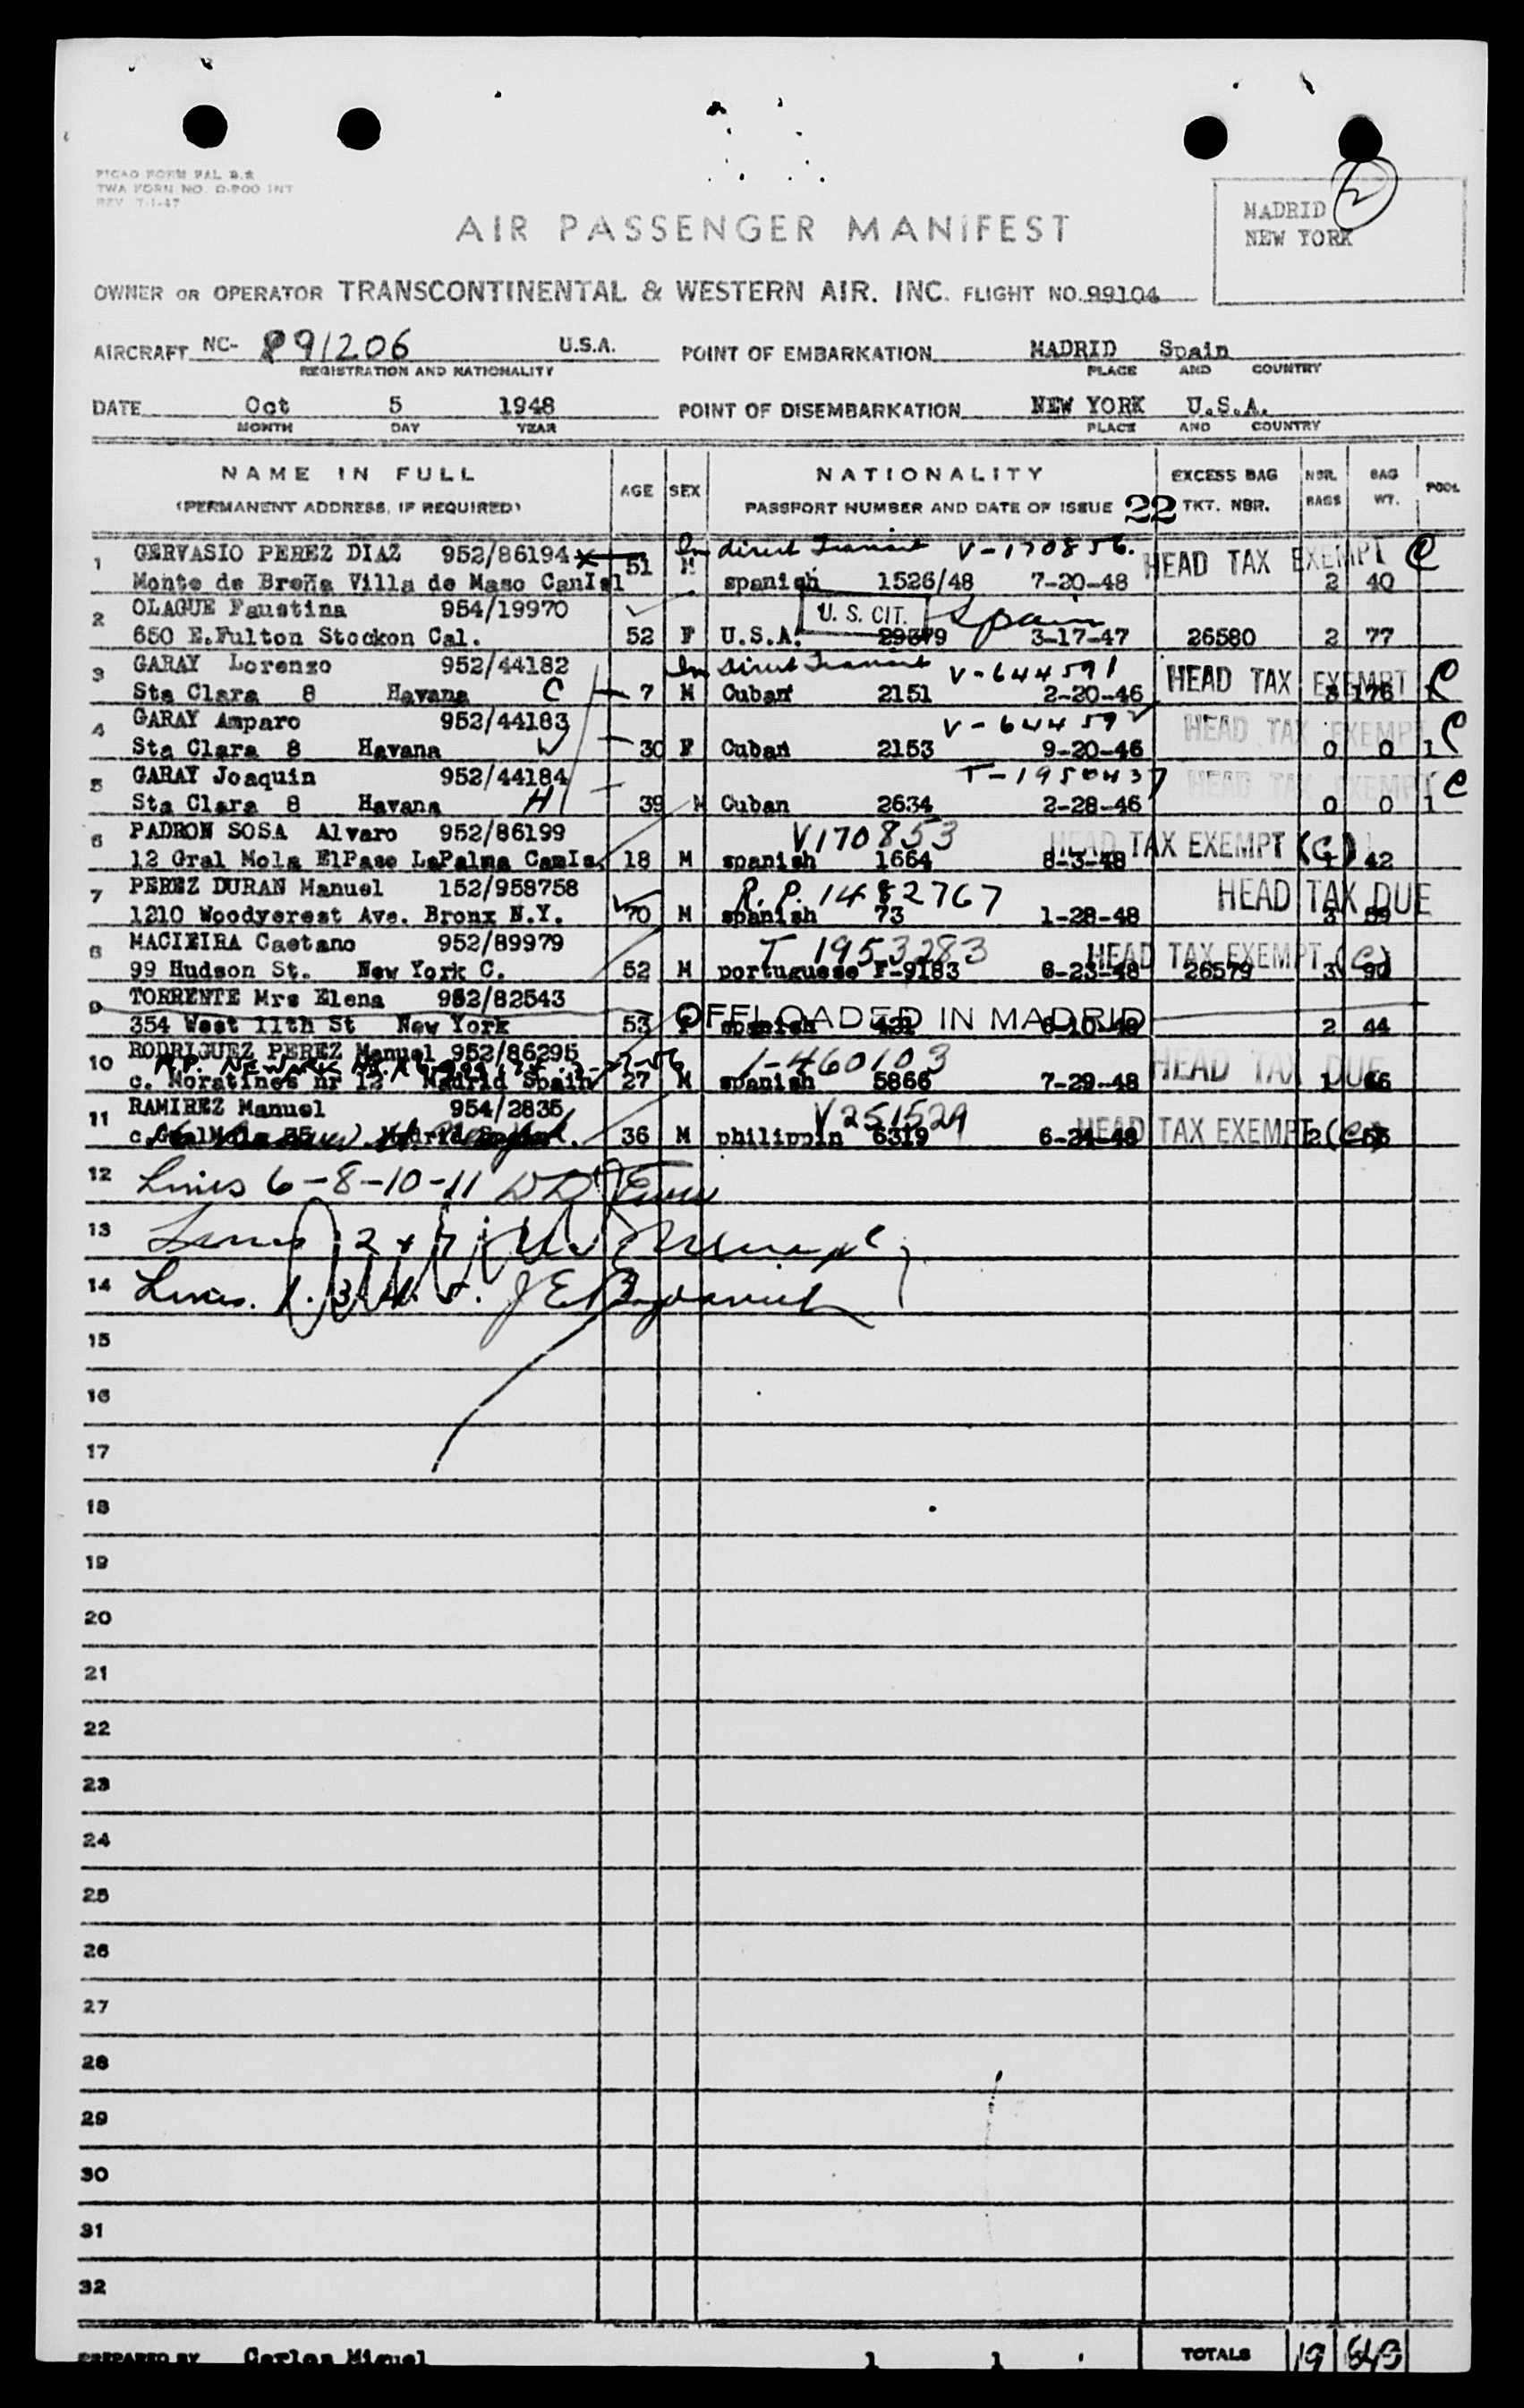 PICAO FORM PAL 2.2
TWA FORM NO. O-200 INT
REV 7-1-47
2
MADRID
NEW YORK
AIR PASSENGER MANIFEST
OWNER OR OPERATOR TRANSCONTINENTAL & WESTERN AIR. INC. FLIGHT NO. 99104
AIRCRAFT NC- 891206 U.S.A. POINT OF EMBARKATION MADRID Spain
REGISTRATION AND NATIONALITY PLACE AND COUNTRY
DATE Oct 5 1948 POINT OF DISEMBARKATION NEW YORK U.S.A.
MONTH DAY YEAR PLACE AND COUNTRY
NAME IN FULL AGE SEX NATIONALITY EXCESS BAG NBR. BAG POOL
(PERMANENT ADDRESS, IF REQUIRED) PASSPORT NUMBER AND DATE OF ISSUE 22 TKT. NBR. BAGS WT.
1 GERVASIO PEREZ DIAZ 952/86194 In direct Transit V-170856. HEAD TAX EXEMPT C
Monte de Breña Villa de Maso CanIsl 51 M spanish 1526/48 7-20-48 2 40
2 OLAGUE Faustina 954/19970 U. S. CIT. Spain
650 E.Fulton Stockon Cal. 52 F U.S.A. 29379 3-17-47 26580 2 77
3 GARAY Lorenzo 952/44182 In direct Transit V-644591 HEAD TAX EXEMPT C
Sta Clara 8 Havana C 7 M Cuban 2151 2-20-46 176
4 GARAY Amparo 952/44183 V-644592 HEAD TAX EXEMPT C
Sta Clara 8 Havana W 30 F Cuban 2153 9-20-46 0 0 1
5 GARAY Joaquin 952/44184 T-1950437 HEAD TAX EXEMPT C
Sta Clara 8 Havana H 39 M Cuban 2634 2-28-46 0 0 1
6 PADRON SOSA Alvaro 952/86199 V170853 HEAD TAX EXEMPT (C)
12 Gral Mola ElPaso LaPalma CanIs. 18 M spanish 1664 8-3-48 1 42
7 PEREZ DURAN Manuel 152/958758 R.P. 1482767 HEAD TAX DUE
1210 Woodycrest Ave. Bronx N.Y. 70 M spanish 73 1-28-48 3 59
8 MACIEIRA Caetano 952/89979 T 1953283 HEAD TAX EXEMPT (C)
99 Hudson St. New York C. 52 M portuguese F-9183 6-23-48 26579 3 90
9 TORRENTE Mrs Elena 952/82543 OFFLOADED IN MADRID
354 West 11th St New York 53 F spanish 421 6-10-48 2 44
10 RODRIGUEZ PEREZ Manuel 952/86295 1-460103 HEAD TAX DUE
R.P. NEWARK N.J.
c. Moratines nr 12 Madrid Spain 27 M spanish 5866 7-29-48 1 66
11 RAMIREZ Manuel 954/2835 V251529 HEAD TAX EXEMPT (C)
c. Gral Mola 35 Madrid Spain. 36 M philippin 6319 6-24-48 2
12 Lines 6-8-10-11
13 Lines 2 + 7
14 Lines. 1. 3. 4. 5. J E
15
16
17
18
19
20
21
22
23
24
25
26
27
28
29
30
31
32
PREPARED BY Carlos Miguel TOTALS 19 640